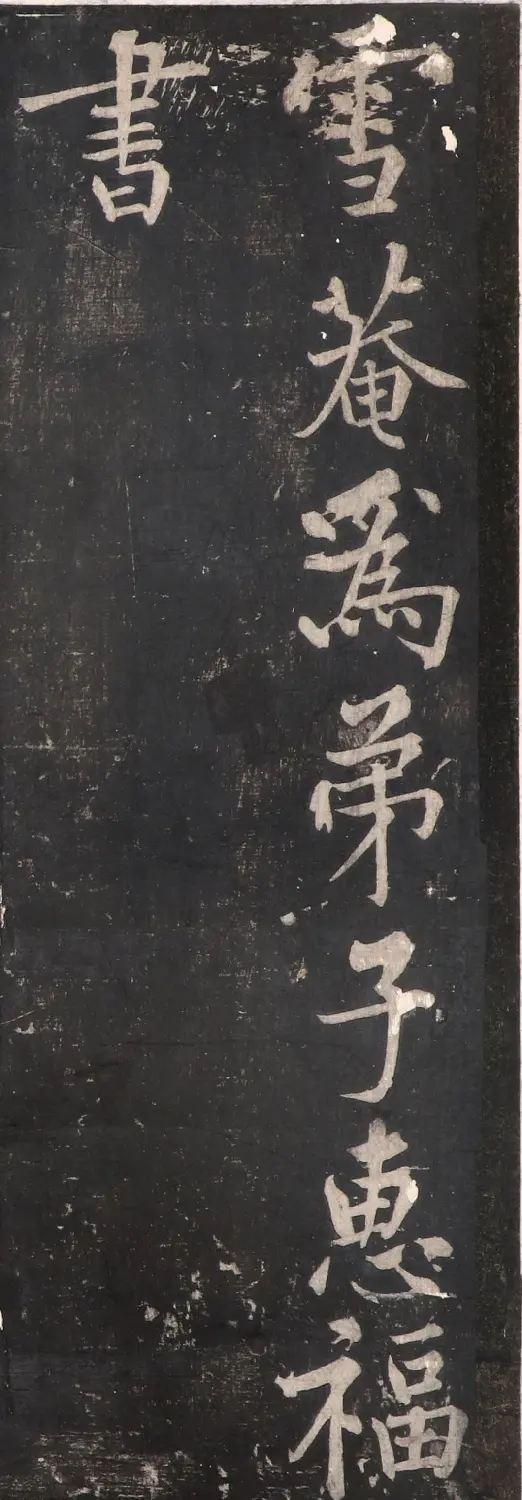 雪菴爲弟子惠福
書